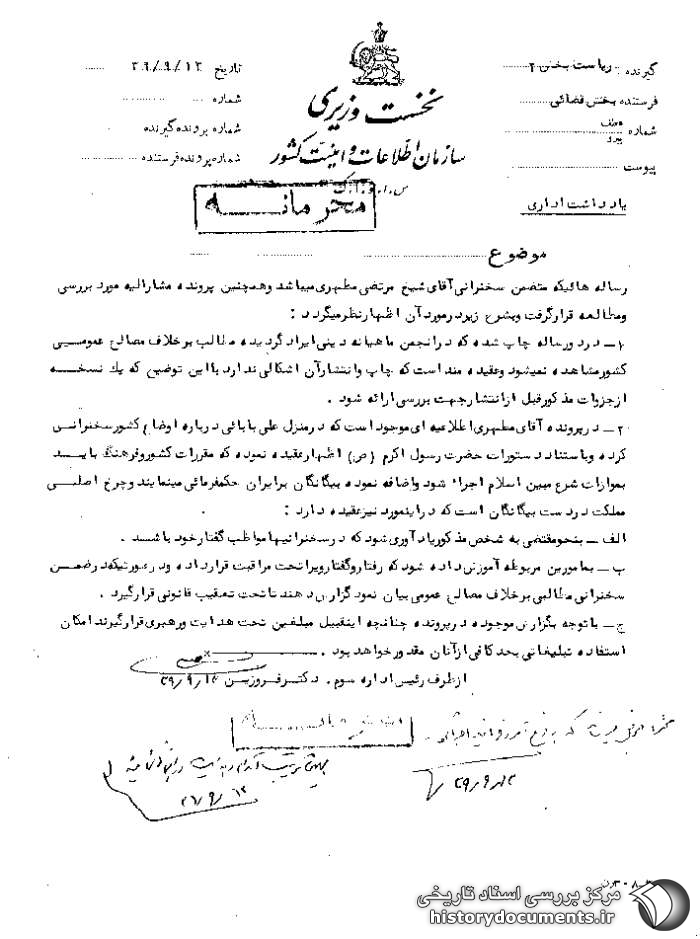 گیرنده : ریاست بخش ۲
فرستنده بخش قضائی
شماره عطف پیرو
پیوست
نخست وزیری
سازمان اطلاعات و امنیت کشور
س.ا.و.ا.ک
تاریخ ۳۹/۹/۱۲
شماره
شماره پرونده گیرنده
شماره پرونده فرستنده
محرمانـــه
یادداشت اداری
موضوع
رساله هائیکه متضمن سخنرانی آقای شیخ مرتضی مطهری میباشد وهمچنین پرونده مشارالیه مورد بررسی
ومطالعه قرارگرفت وبشرح زیر درمورد آن اظهارنظر میگردد :
۱ــ درد و رساله چاپ شده که درانجمن ماهیانه دینی ایراد گردیده مطالب برخلاف مصالح عمومــی
کشور مشاهده نمیشود وعقیده منداست که چاپ وانتشارآن اشکالی ندارد بااین توضیح که یك نسخــه
ازجزوات مذکور قبل ازانتشارجهت بررسی ارائه شود .
۲ــ درپرونده آقای مطهری اطلاعیه ای موجود است که درمنزل علی بابائی درباره اوضاع کشور سخنرانــی
کرده وباستناد دستورات حضرت رسول اکرم (ص) اظهارعقیده نموده که مقررات کشوروفرهنگ بایـــد
بموازات شرع مبین اسلام اجراء شود واضافه نموده بیگانگان برایران حکمفرمائی مینمایند وچرخ اصلــی
مملکت دردست بیگانگان است که دراینمورد نیزعقیده دارد :
الف ــ بنحومقتضی به شخص مذکوریادآوری شود که درسخنرانیها مواظب گفتارخود باشــد .
ب ــ بمامورین مربوطه آموزش داده شود که رفتاروگفتارویراتحت مراقبت قرارداده ودرصورتیکه درضمــن
سخنرانی مطالبی برخلاف مصالح عمومی بیان نمود گزارش دهند تا تحت تعقیب قانونی قرارگیرد .
ج ــ باتوجه بگزارش موجوده درپرونده چنانچه اینقبیل مبلغین تحت هدایت ورهبری قرارگیرند امکان
استفاده تبلیغاتی بحد کافی ازآنان مقدورخواهد بود .
ازطرف رئیس اداره سوم . دکترفروزین ۳۹/۹/۱۲
۳۹/۹/۱۲
مرکز بررسی اسناد تاریخی
historydocuments.ir